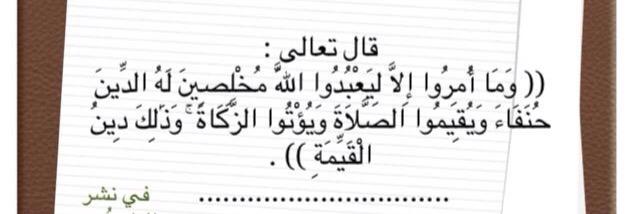 قال تعالى :
(( وَمَا أُمِرُوا إِلاَّ لِيَعْبُدُوا اللهَّ مُخْلِصِينَ لَهُ الدِّينَ
حُنَفَاءَ وَيُقِيمُوا الصَّلاَةَ وَيُؤْتُوا الزَّكَاةَ ۚ وَذَٰلِكَ دِينُ
الْقَيِّمَةِ )) .
............................... في نشر